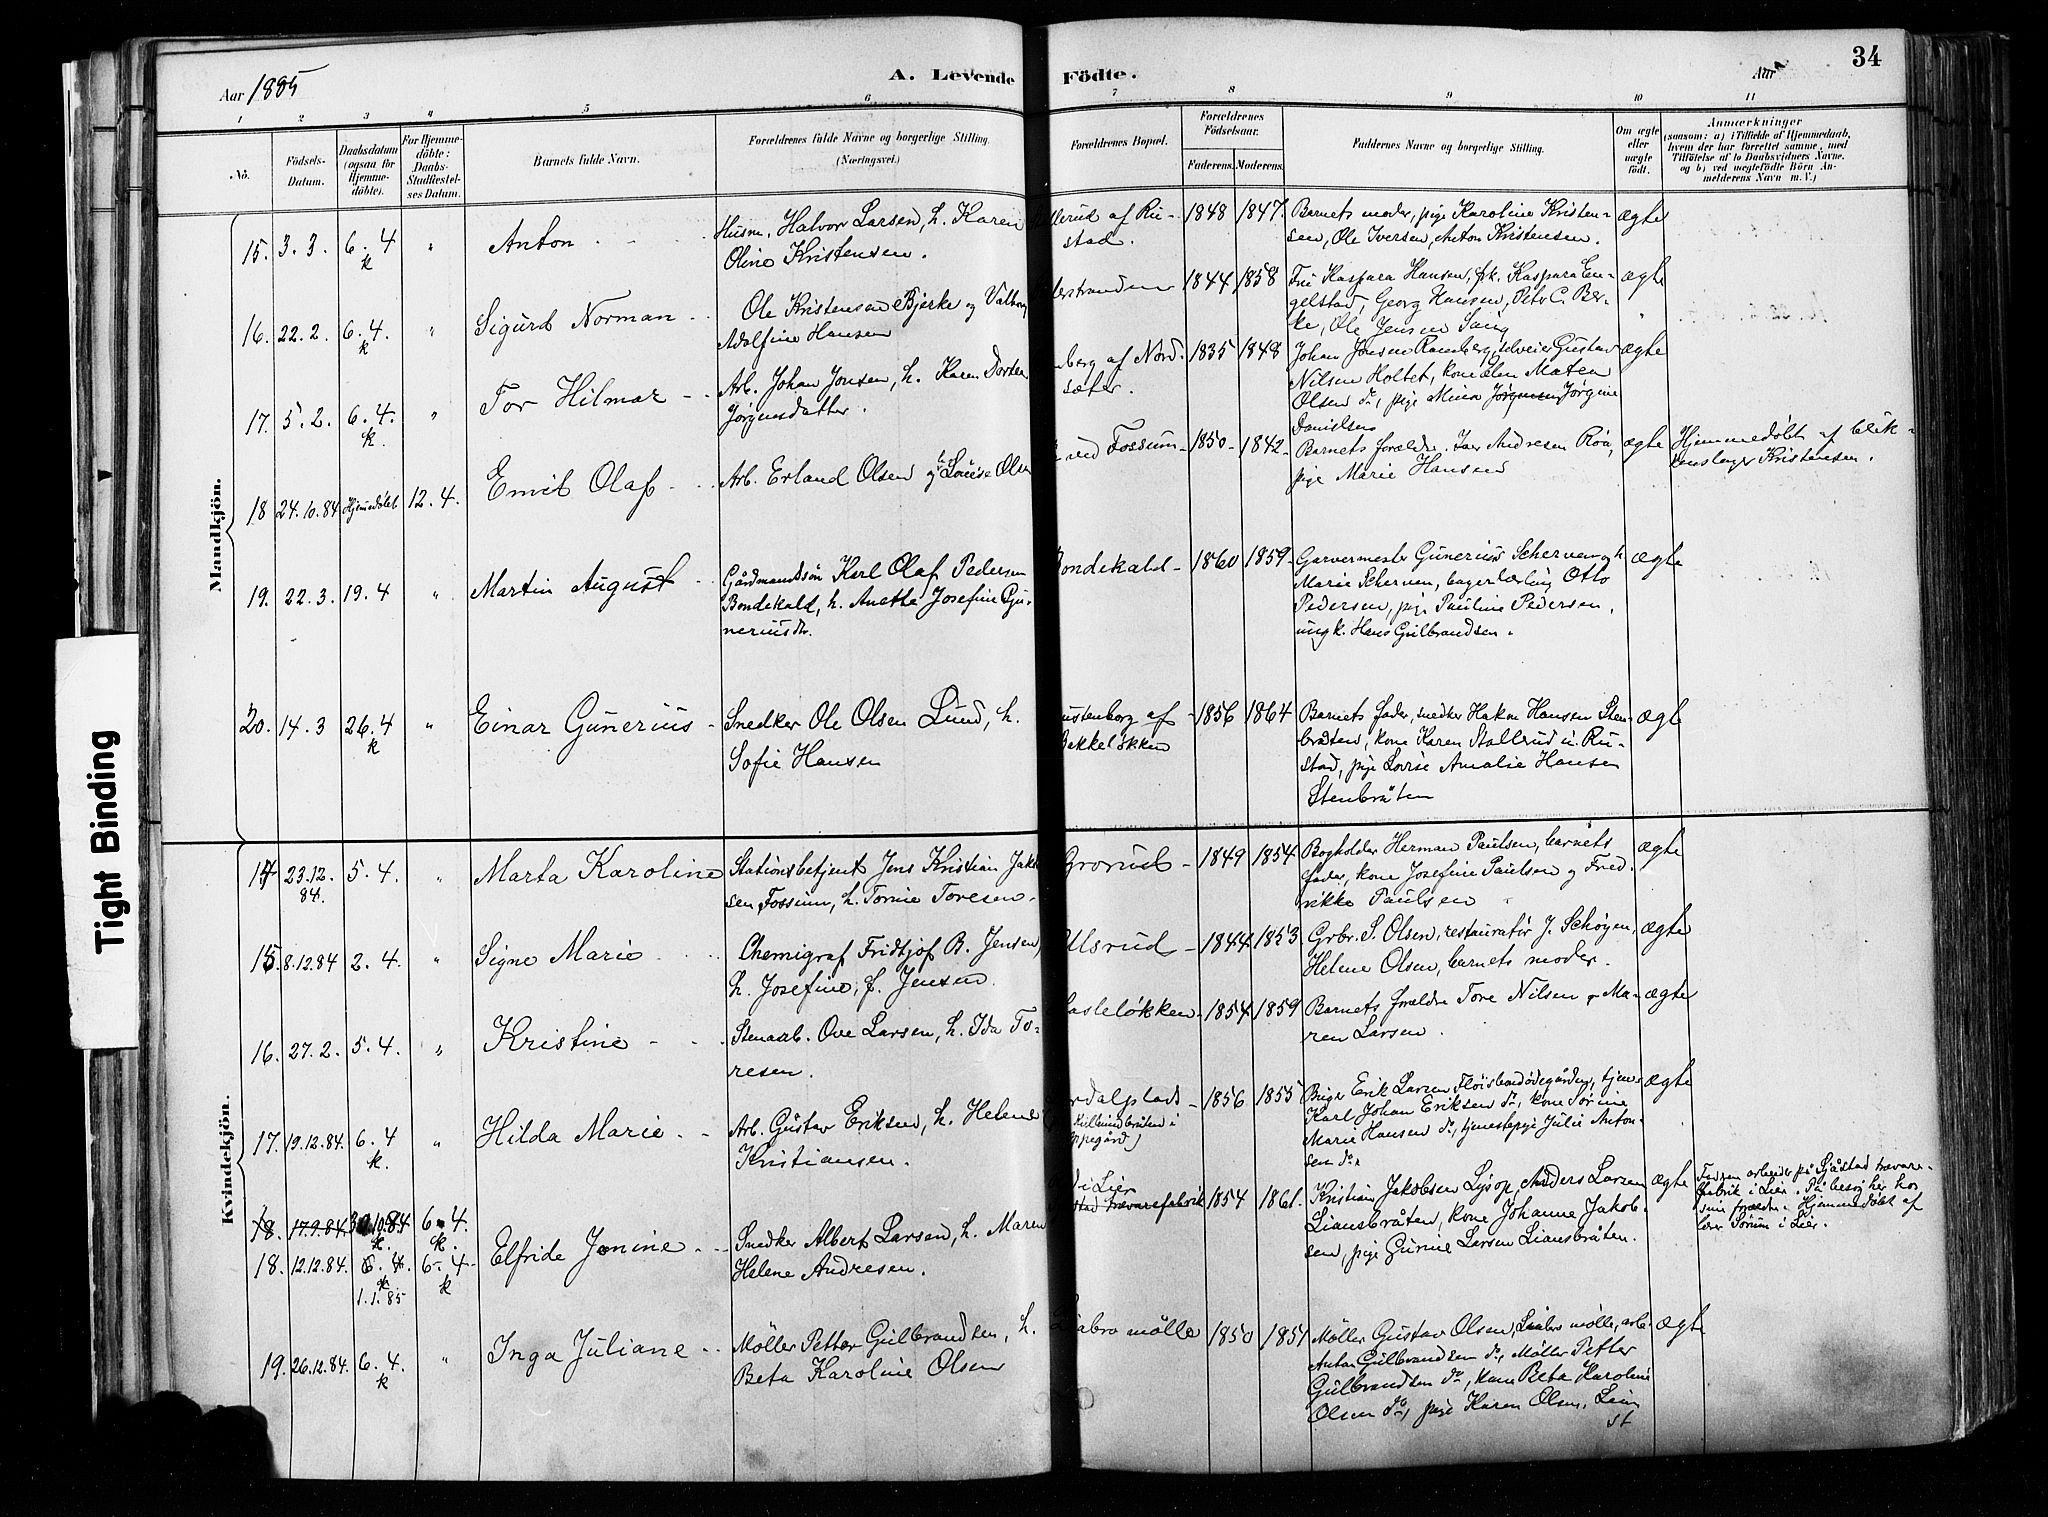 34
Aar 1885
A. Levende Födte.
Aar
1 2 3 4 5 6 7 8 9 10 11
No.
Födsels-Datum.
Daabsdatum (ogsaa for Hjemmedöbte).
For Hjemmedöbte: Daabs-Stadfæstelses Datum.
Barnets fulde Navn.
Forældrenes fulde Navne og borgerlige Stilling. (Næringsvei.)
Forældrenes Bopæl.
Forældrenes Födselsaar.
Faderens. Moderens.
Faddernes Navne og borgerlige Stilling.
Om ægte eller uægte födt.
Anmærkninger
(saasom: a) i Tilfælde af Hjemmedaab, hvem der har forrettet samme, med Tilföielse af to Daabsvidners Navne. og b) ved uægtefödte Börn Anmelderens Navn m. V.)
Mandkjön.
15. 3.3. 6.4 k " Anton
Husm. Halvor Larsen, h. Karen
Oline Kristensen.
llerud af Ru-
stad.
1848 1847.
Barnets moder, pige Karoline Kristen-
sen, Ole Iversen, Anton Kristensen.
ægte
16. 22.2. 6.4. k " Sigurd Norman
Ole Kristensen Bjerke og Valborg
Adolfine Hansen
lerstranden
1844 1858
Fru Kaspara Hansen, frk. Kaspara En-
gelstad, Georg Hansen, Petr C. Ber-
ke, Ole Jensen
ægte
17. 5.2. 6.4. k. " Tor Hilmar
Arb. Johan Jonsen, h. Karen Dortea
Jørgensdatter.
berg af Nord-
sæter.
1835 1848
Johan Jonsen Ramberg, selveier Gustav
Nilsen Holtet, kone Elen Maten
Olsen do, pige Mina Jørgensen Jørgine
Danielsen
ægte
18 24.10.84 Hjemedøbt 12.4. Emil Olaf
Arb. Erland Olsen og h. Louise Olsen
ved Fossum
1850 1842
Barnets forældre, Iver Andresen Røa,
pige Marie Hansen
ægte
Hjemmedøbt af blik-
kenslager Kristensen.
19. 22.3. 19.4 " Martin August
Gårdmandssøn Karl Olaf Pedersen
Bondekald, h. Anette Josefine Gu-
neriusdr.
Bondekald
1860 1859
Garvermester Gunerius Scherven og h.
Marie Scherven, bagerlærling Otto
Pedersen, pige Pauline Pedersen,
ungk. Hans Gulbrandsen.
ægte
20. 14.3 26.4 k " Einar Gunerius
Snedker Ole Olsen Lund, h.
Sofie Hansen
ustenborg af
Bekkeløkken
1856 1864
Barnets fader, snedker Hakon Hansen Sten-
bråten, kone Karen Stallerud u. Ru-
stad, pige Lovise Amalie Hansen
Stenbråten
ægte
Kvindekjön.
14 23.12.84. 5.4. " Marta Karoline
Stationsbetjent Jens Kristian Jakob-
sen Fossum, h. Tomine Toresen.
Grorud
1849 1854
Bogholder Herman Paulsen, barnets
fader, kone Josefine Paulsen og Fred-
rikke Paulsen
ægte
15. 8.12.84 2.4. " Signe Marie
Chemigraf Fridtjof B. Jensen,
h. Josefine, f. Jensen.
Ulsrud
1844 1853
Grbr. S. Olsen, restauratør J. Schøyen,
Helene Olsen, barnets moder.
ægte
16. 27.2. 5.4. " Kristine
Stenarb. Ove Larsen, h. Ida To-
resen.
asleløkken
1854 1859
Barnets forældre Tore Nilsen og Ma-
ren Larsen.
ægte
17. 19.12.84. 6.4 k. " Hilda Marie
Arb. Gustav Eriksen, h. Helene
Kristiansen.
rdalplads
ppegård)
1856 1855
Bruger Erik Larsen, Fløisbondødegården, tjener
Karl Johan Eriksen do, kone Sørine
Marie Hansen do, tjenestepige Julie Anton-
sen do.
ægte
18. 17.9.84. 30.10.84 k. 6.4. k.
18. 12.12.84. 6.4. k 1.1.85 6.4 k Elfride Jonine
Snedker Albert Larsen, h. Maren
Helene Andresen.
i Lier
stad trævarefabrik
1854 1861.
Kristian Jakobsen Lysop, Anders Larsen
Liansbråten, kone Johanne Jakob-
sen, pige Gurine Larsen Liansbråten.
ægte
Faderen arbeider på Sjåstad trævare-
fabrik i Lier. På besøg her hos
sine forældre. Hjemmedøbt af
lærer Sørum i Lier.
19. 26.12.84. 6.4. k " Inga Juliane
Møller Petter Gulbrandsen, h.
Beta Karoline Olsen
Liabro mølle
1850 1851
Møller Gustav Olsen, Liabro mølle, arb.
Anton Gulbrandsen do, Møller Petter
Gulbrandsen do, kone Beta Karoline
Olsen do, pige Karen Olsen, Lian
st
ægte
Tight Binding